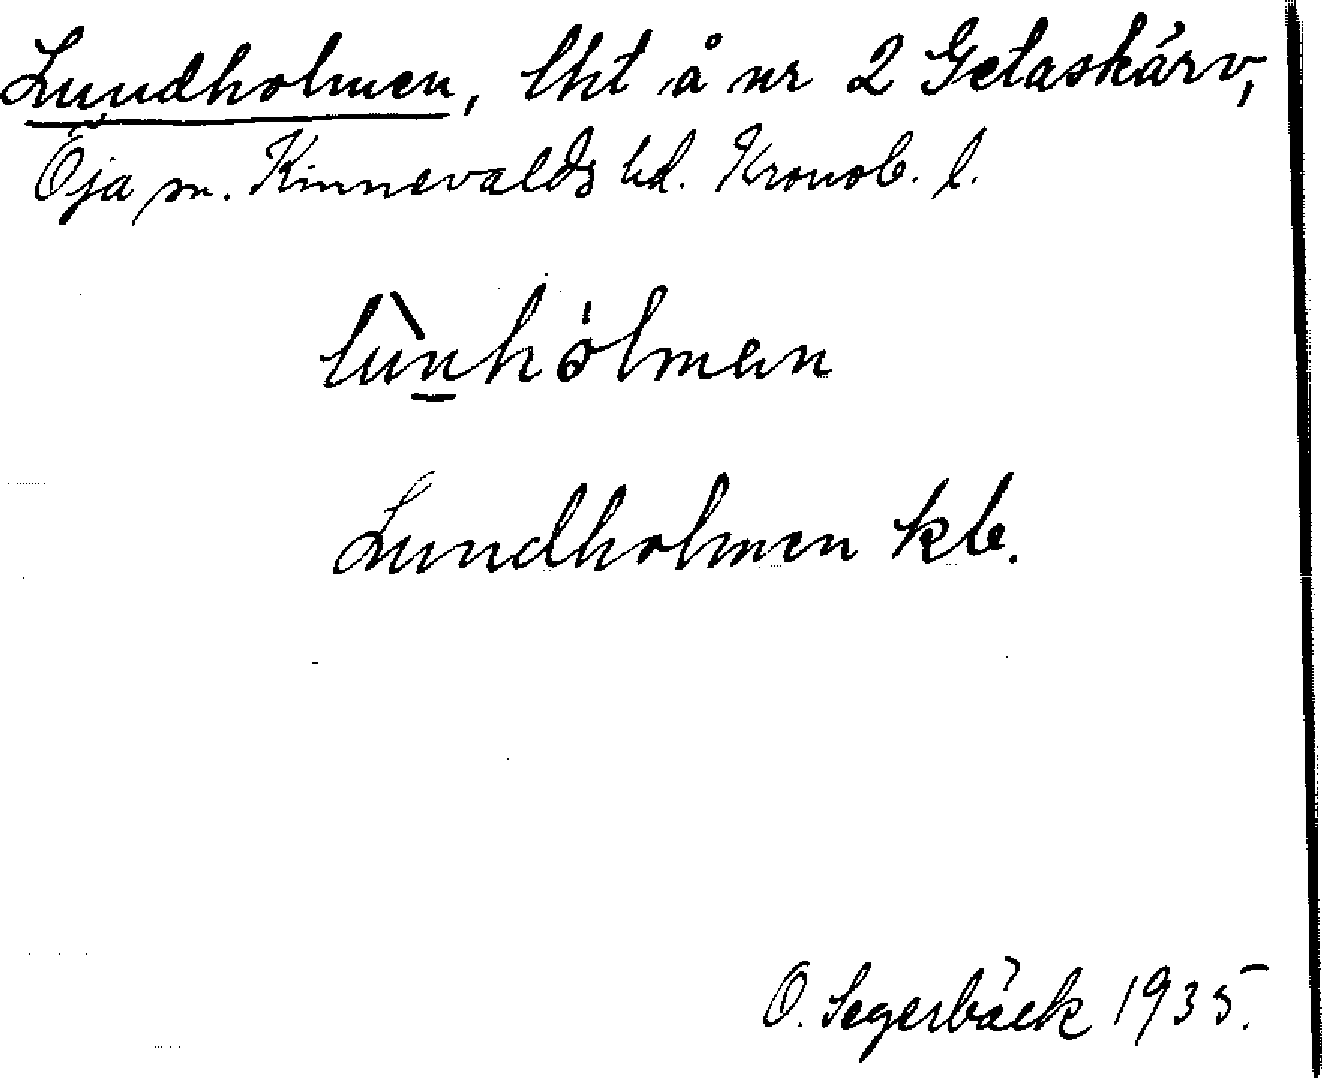 Lundholmen, lht å nr 2 Getaskärv,
Öja sn. Kinnevalds hd. Kronob. l.
lùnhólmen
Lundholmen kb.
O. Segerbäck 1935.